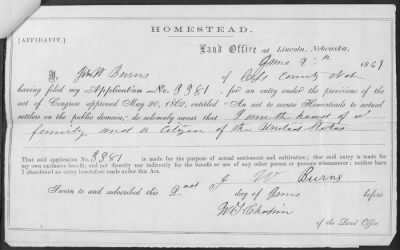 HOMESTEAD.
[AFFIDAVIT.]
Land Office at Lincoln, Nebraska,
June 2nd 1869
I, John W Burns of Cass County Neb
having filed my Application No. 3381, for an entry under the provisions of the
act of Congress approved May 20, 1862, entitled "An act to secure Homesteads to actual
settlers on the public domain," do solemnly swear that I am the head of a
family and a citizen of the United States
That said application No. 3381 is made for the purpose of actual settlement and cultivation; that said entry is made for
my own exclusive benefit, and not directly nor indirectly for the benefit or use of any other person or persons whomsoever; neither have
I abandoned an entry heretofore made under this Act.
J W Burns
Sworn to and subscribed this 2nd day of June before
of the Land Office.